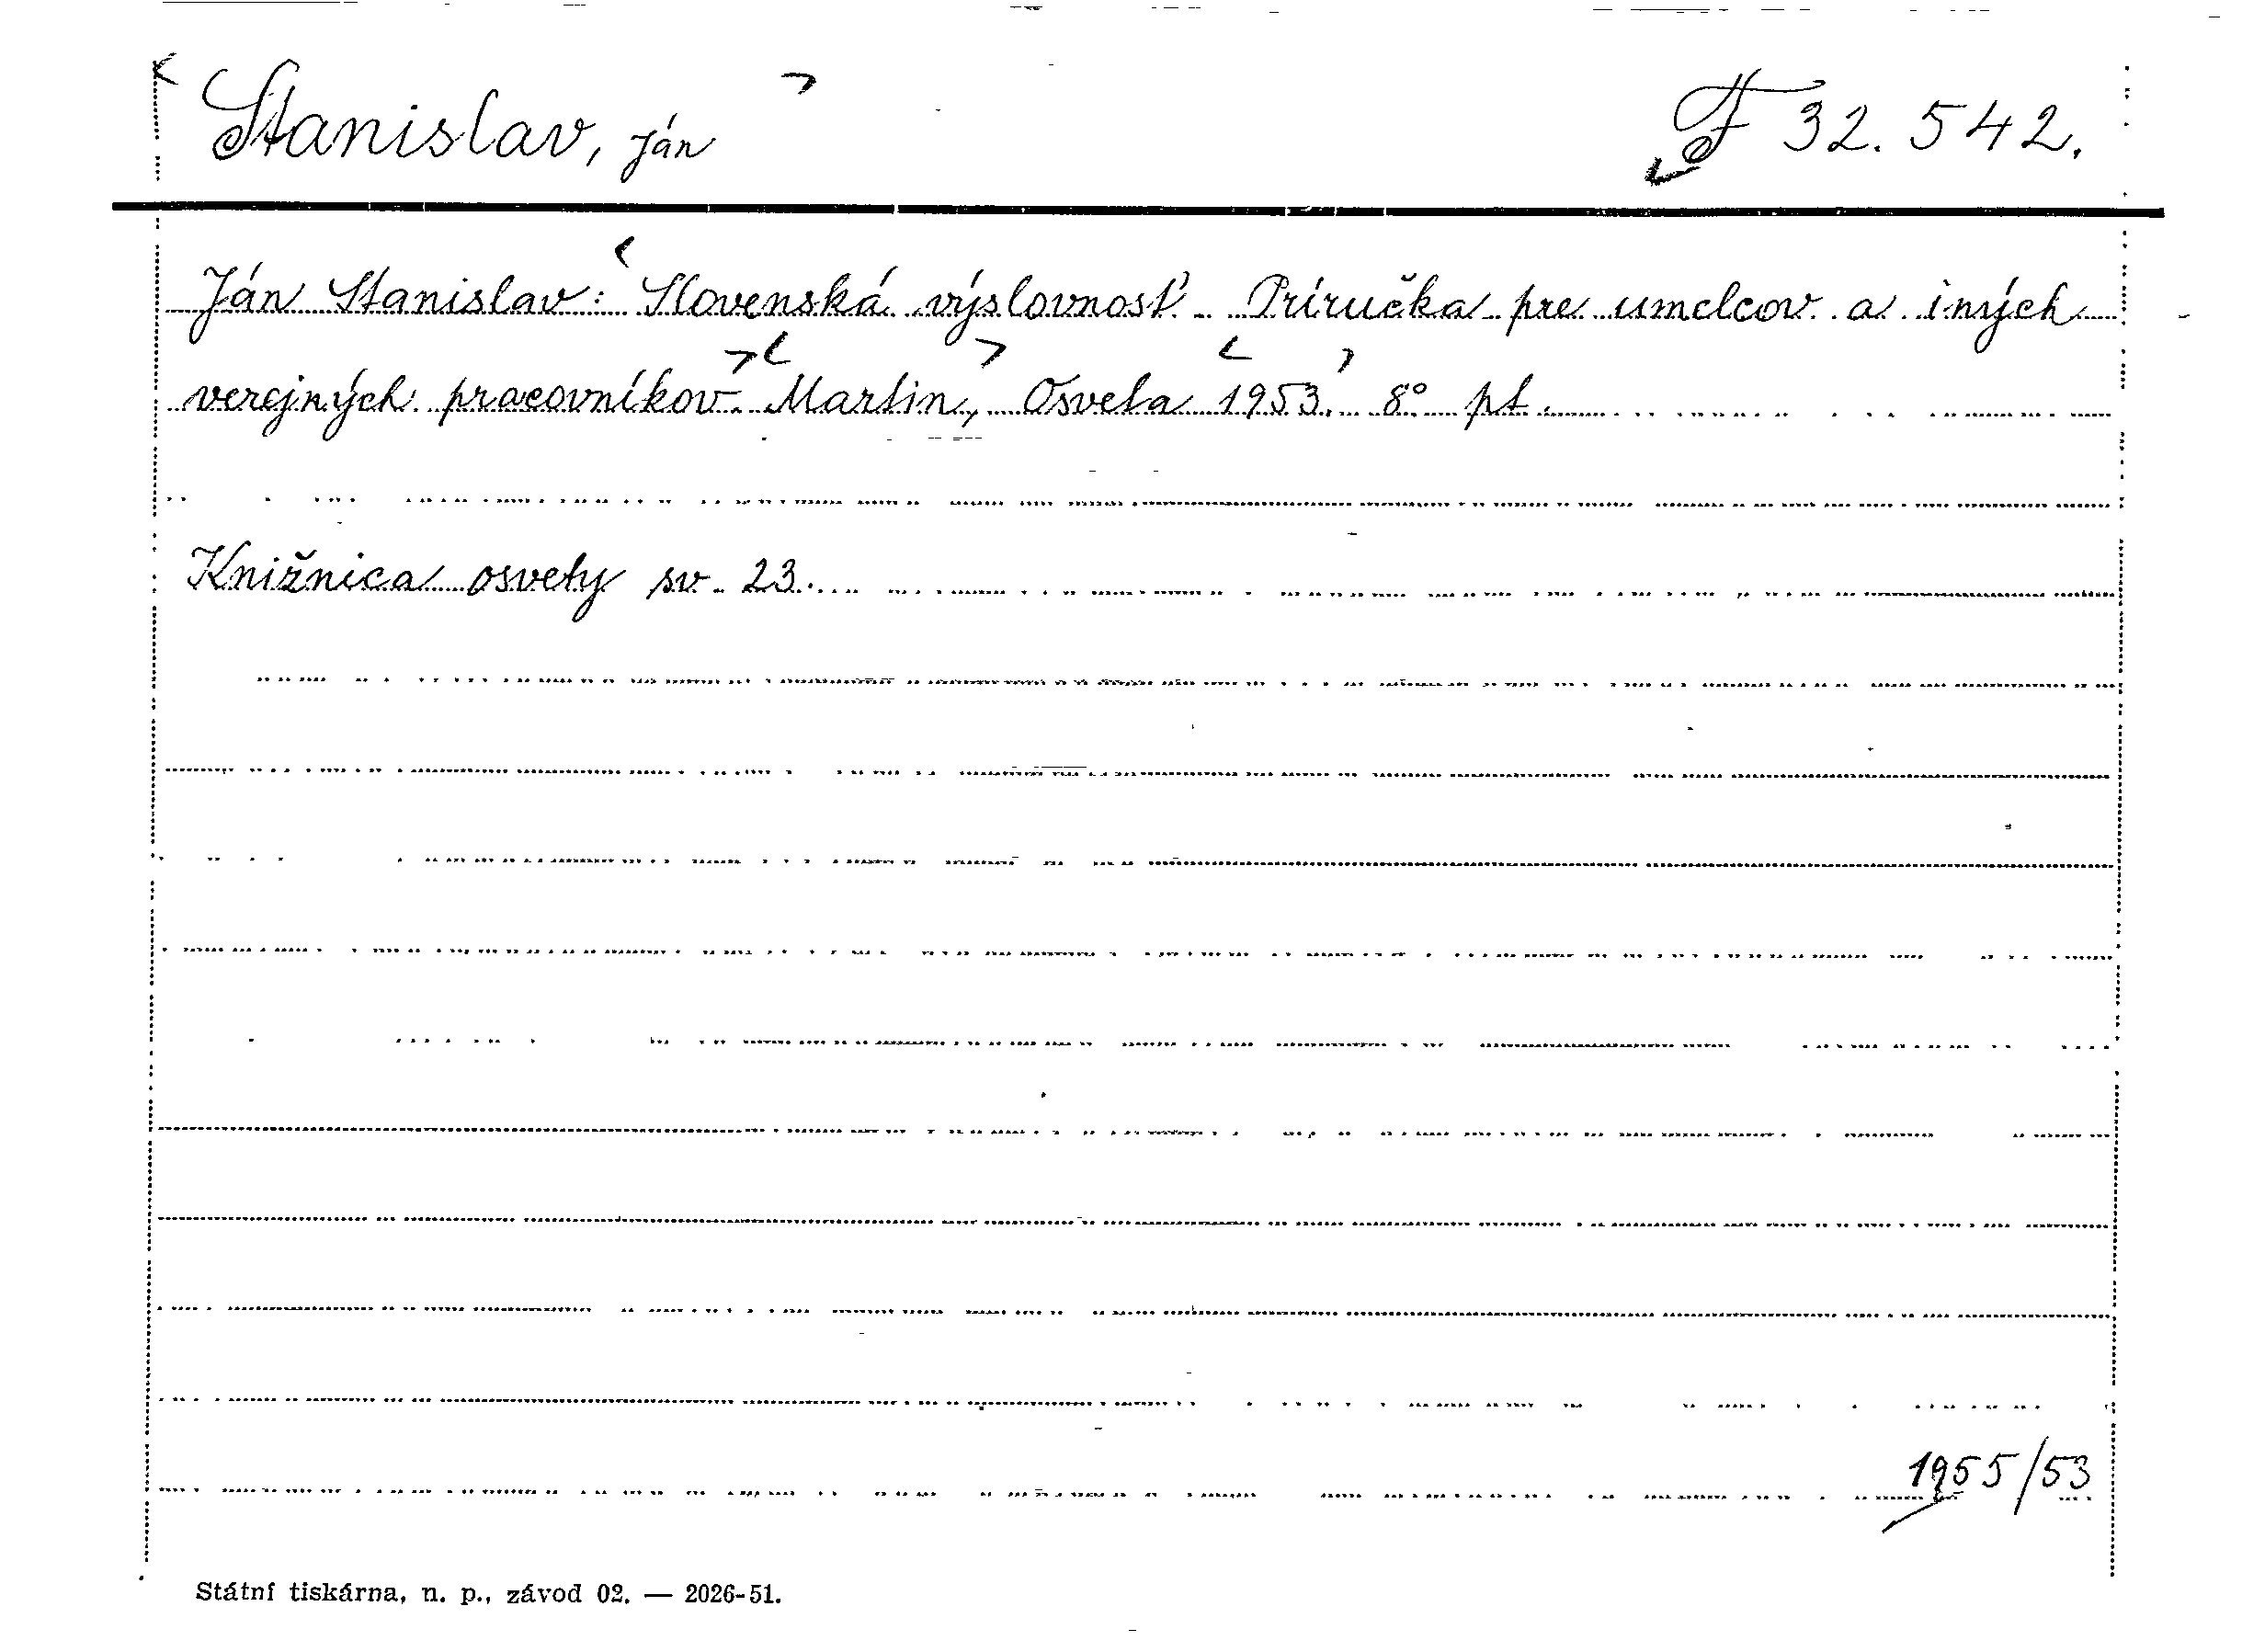 Stanislav, Ján F 32.542.
Ján Stanislav: Slovenská výslovnosť. Príručka pre umelcov a iných
verejných pracovníkov. Martin, Osveta 1953. 8° pt.
Knižnica osvety sv. 23.
1955/53
Státní tiskárna, n. p., závod 02. — 2026-51.